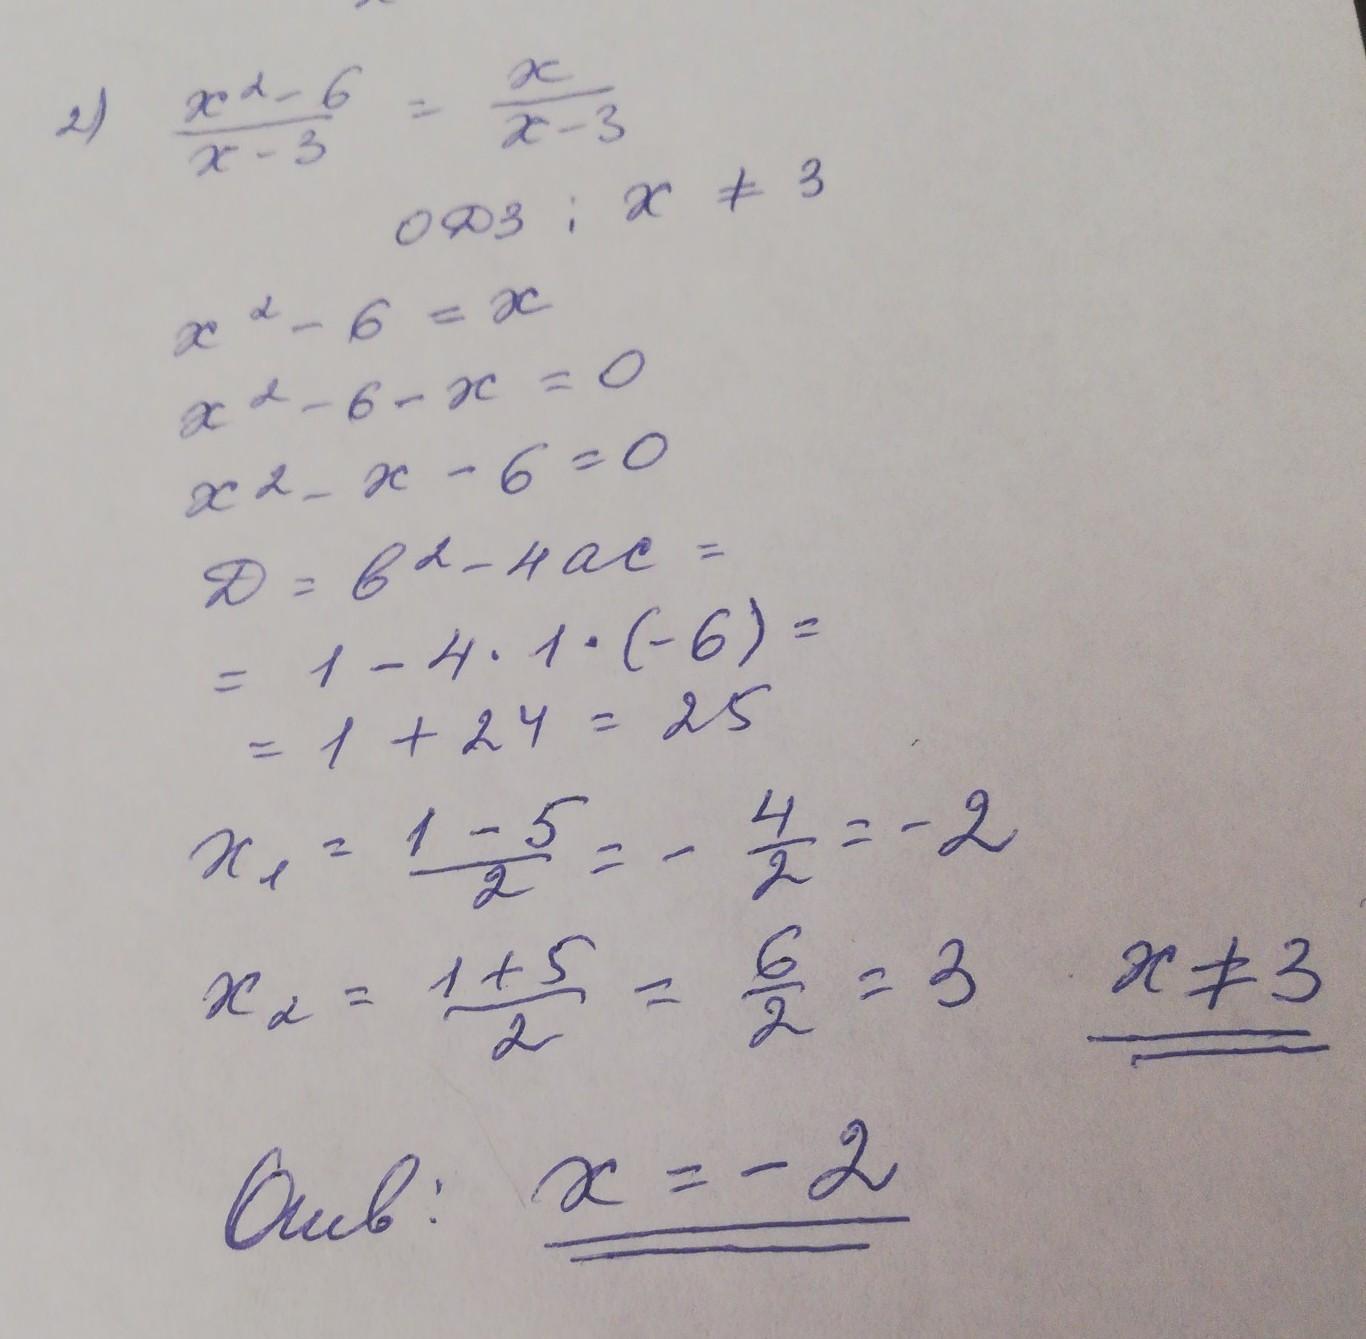 2) x² - 6 / x - 3 = x / x - 3
ОДЗ : x ≠ 3
x² - 6 = x
x² - 6 - x = 0
x² - x - 6 = 0
Д = в² - 4ac =
= 1 - 4 · 1 · (-6) =
= 1 + 24 = 25
x₁ = 1 - 5 / 2 = - 4 / 2 = - 2
x₂ = 1 + 5 / 2 = 6 / 2 = 3 x ≠ 3
Отв: x = - 2